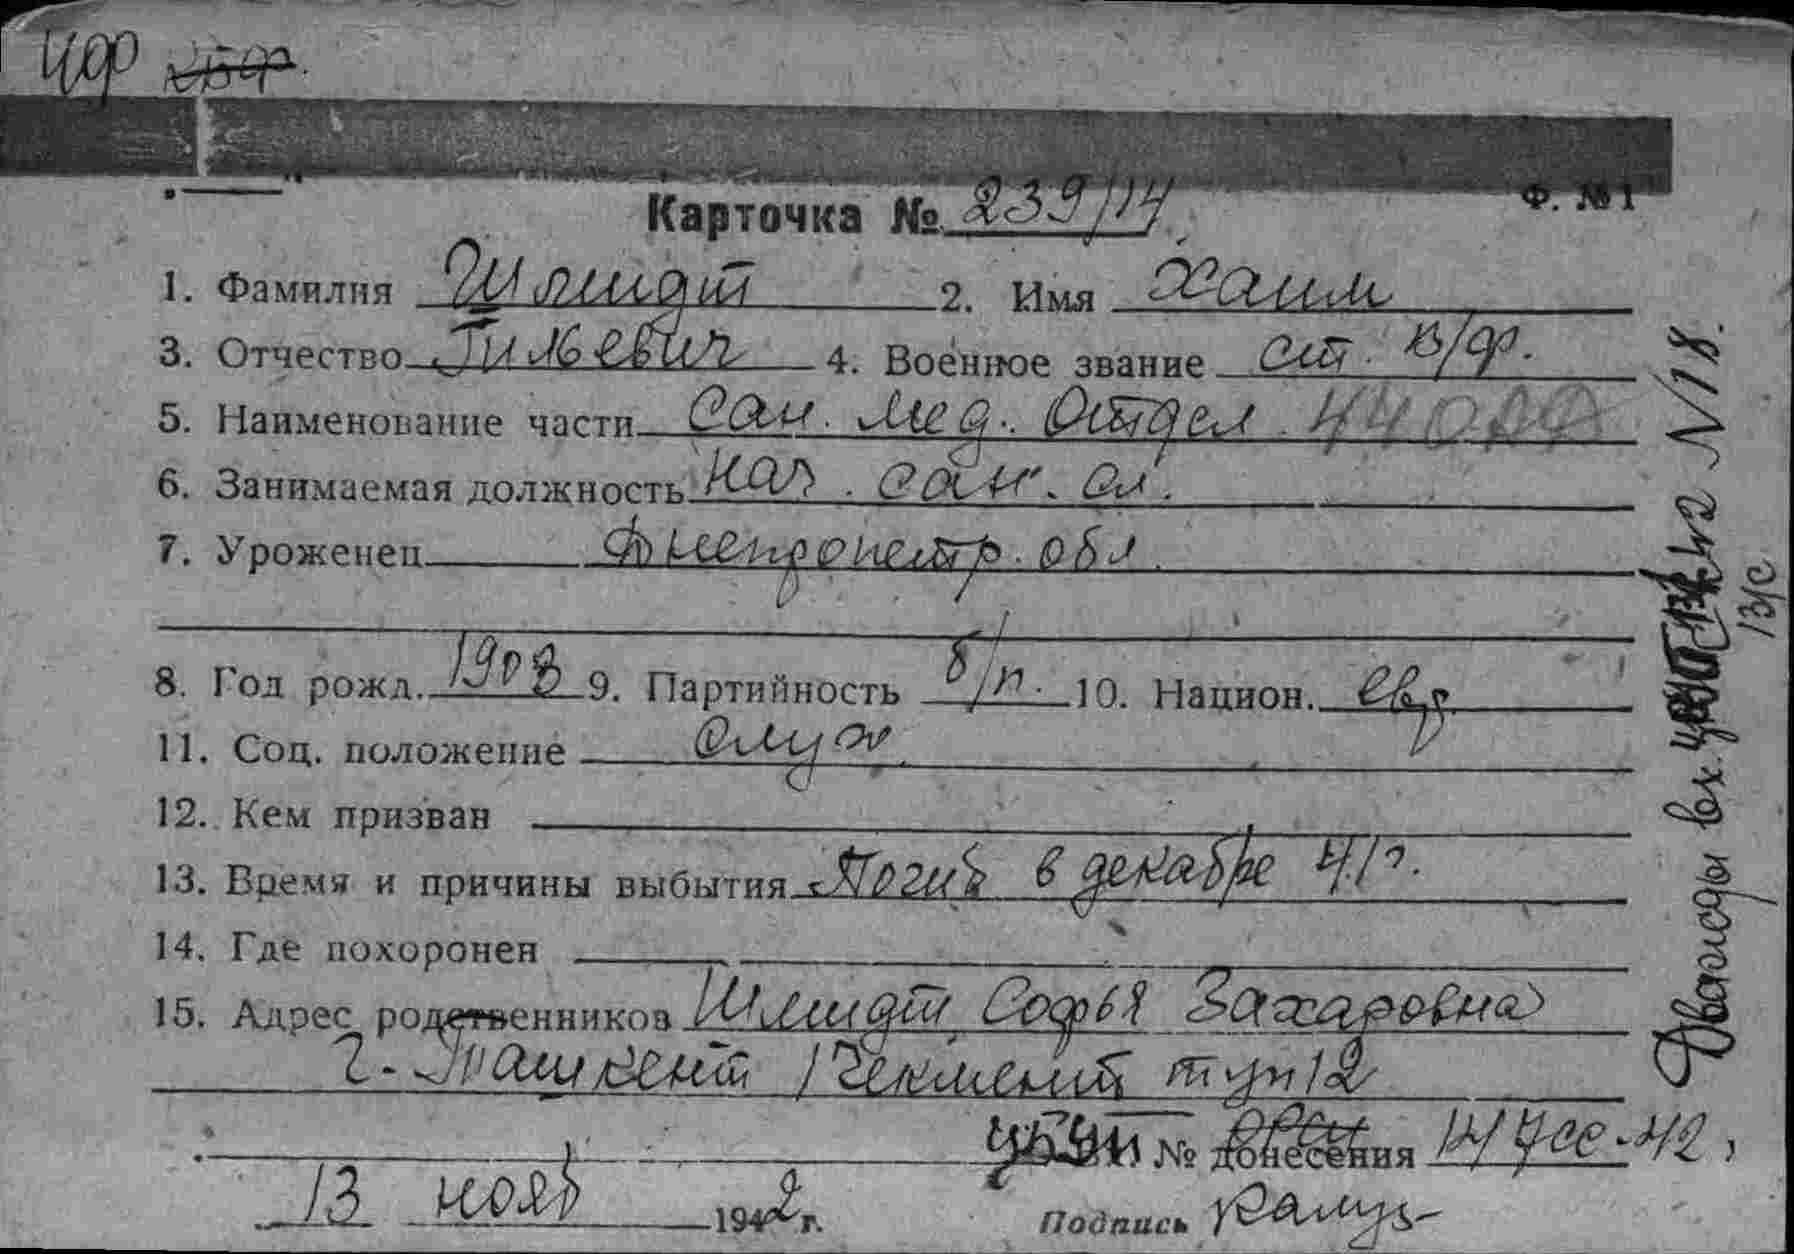 ЧФ КБФ.
Ф. №1
Карточка № 239/14
1. Фамилия Шмидт 2. Имя Хаим
3. Отчество Гильевич 4. Военное звание ст. в/ф.
5. Наименование части Сан. Мед. Отдел
6. Занимаемая должность Нач. сан. сл.
7. Уроженец Днепропетр. обл.
8. Год рожд. 1908 9. Партийность б/п. 10. Национ. евр.
11. Соц. положение служ.
12. Кем призван
13. Время и причины выбытия Погиб в декабре 41 г.
14. Где похоронен
15. Адрес родственников Шмидт Софья Захаровна
г. Ташкент 1 Чекмент туп 12
№ донесения 147сс-42
13 нояб 1942 г. Подпись
Дважды вх. N 18.